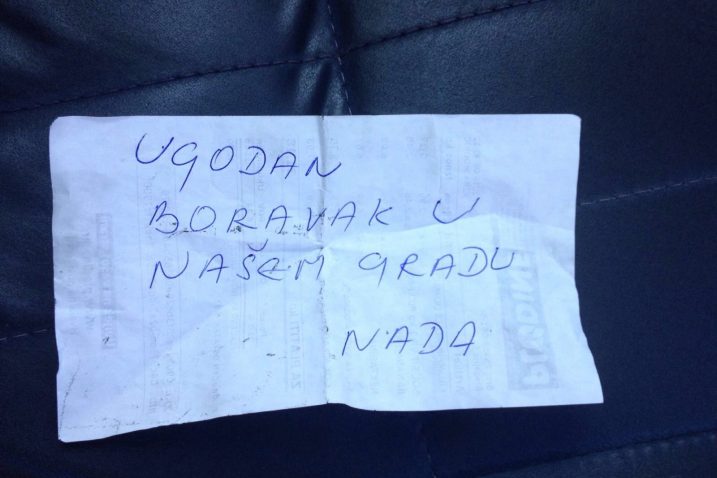 UGODAN
BORAVAK U
NAŠEM GRADU
NADA